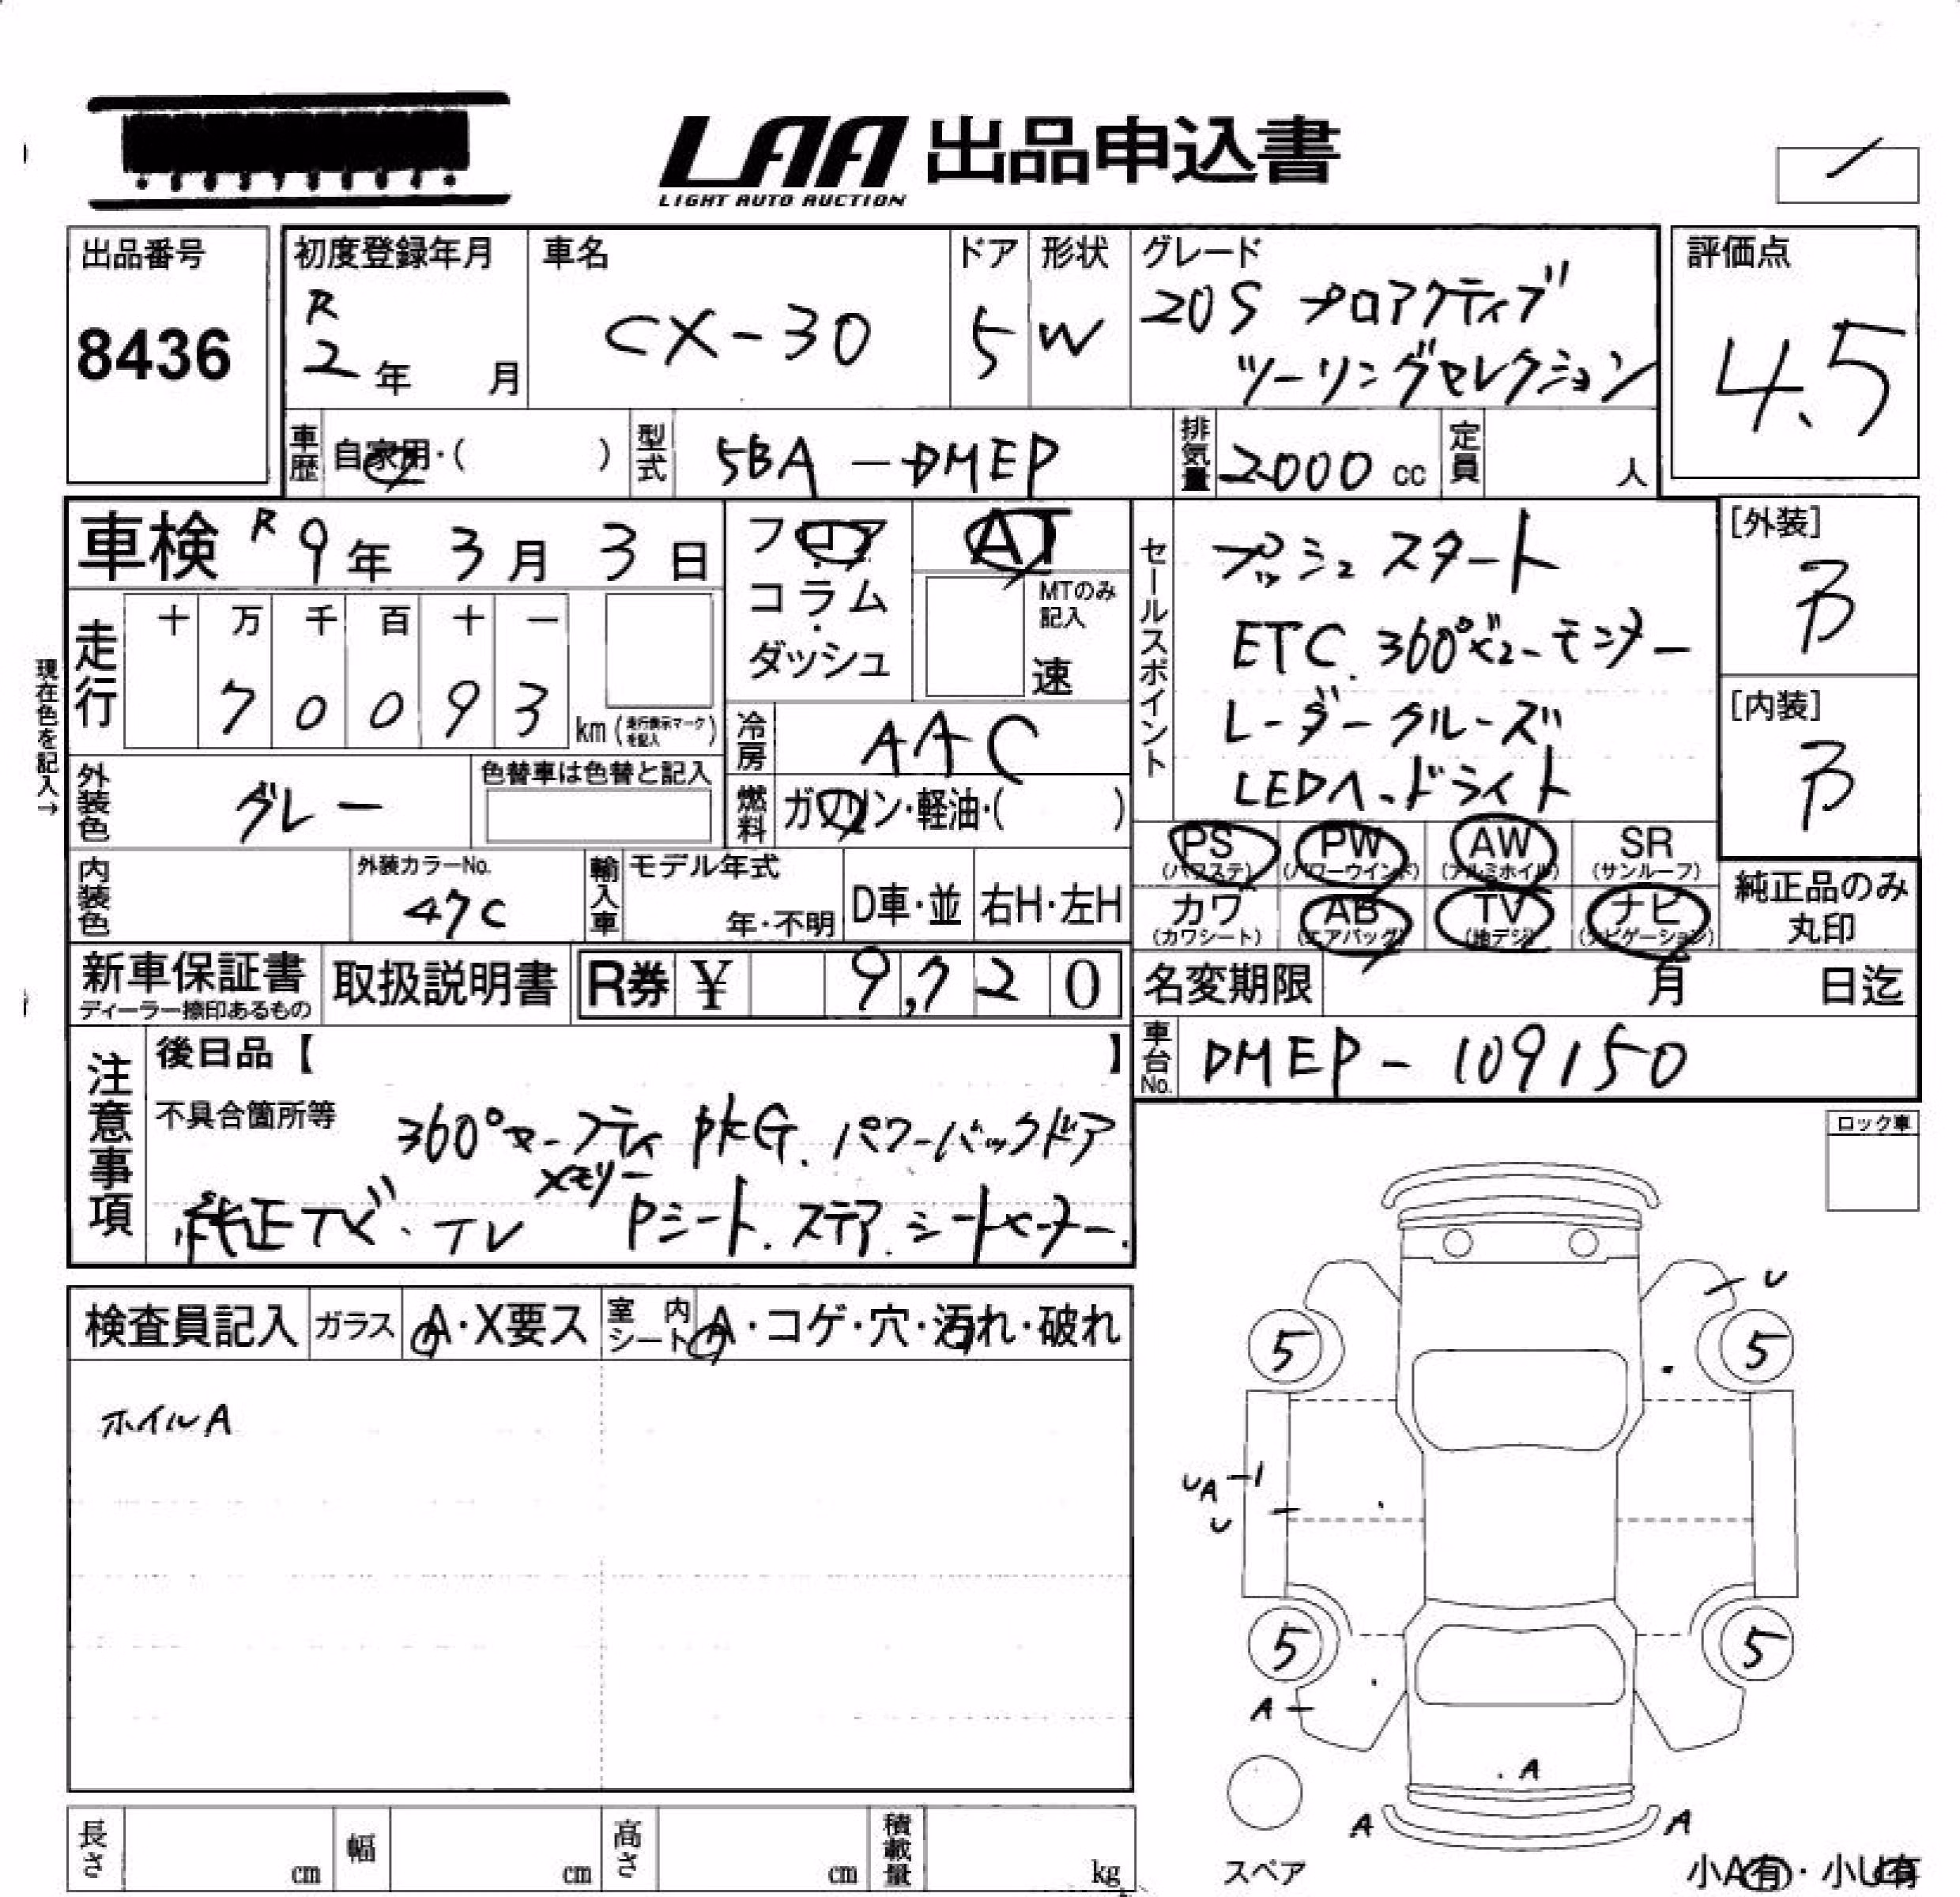 LAA 出品申込書
LIGHT AUTO AUCTION
出品番号
8436
初度登録年月
R
2年 月
車名
CX-30
ドア
5
形状
W
グレード
20S プロアクティブ
ツーリングセレクション
評価点
4.5
車歴 自家用・( )
型式 5BA-DMEP
排気量 2000 cc
定員 人
車検 R 9年 3月 3日
フロア
・
コラム
・
ダッシュ
AT
MTのみ
記入
速
セールスポイント
プッシュスタート
ETC. 360°ビューモニター
レーダークルーズ
LEDヘッドライト
[外装]
B
[内装]
B
現在色を記入→
走行
十 万 千 百 十 一
7 0 0 9 3
km (走行表示マークを記入)
冷房 AAC
外装色 グレー
色替車は色替と記入
燃料 ガソリン・軽油・( )
PS (パワステ)
PW (パワーウインド)
AW (アルミホイル)
SR (サンルーフ)
カワ (カワシート)
AB (エアバッグ)
TV (地デジ)
ナビ (ナビゲーション)
純正品のみ
丸印
内装色
外装カラーNo.
47C
輸入車
モデル年式
年・不明
D車・並
右H・左H
新車保証書
ディーラー捺印あるもの
取扱説明書
R券 ¥ 9,720
名変期限 月 日迄
車台No. DMEP-109150
注意事項
後日品【 】
不具合箇所等
360°セーフティ PKG. パワーバックドア
メモリー
純正ナビ・TV Pシート. ステア. シートヒーター.
ロック車
検査員記入
ガラス A・X要ス
室内シート A・コゲ・穴・汚れ・破れ
ホイルA
U
5
5
UA
U
5
5
A
A
A
A
スペア
長さ cm
幅 cm
高さ cm
積載量 kg
小A有・小U有